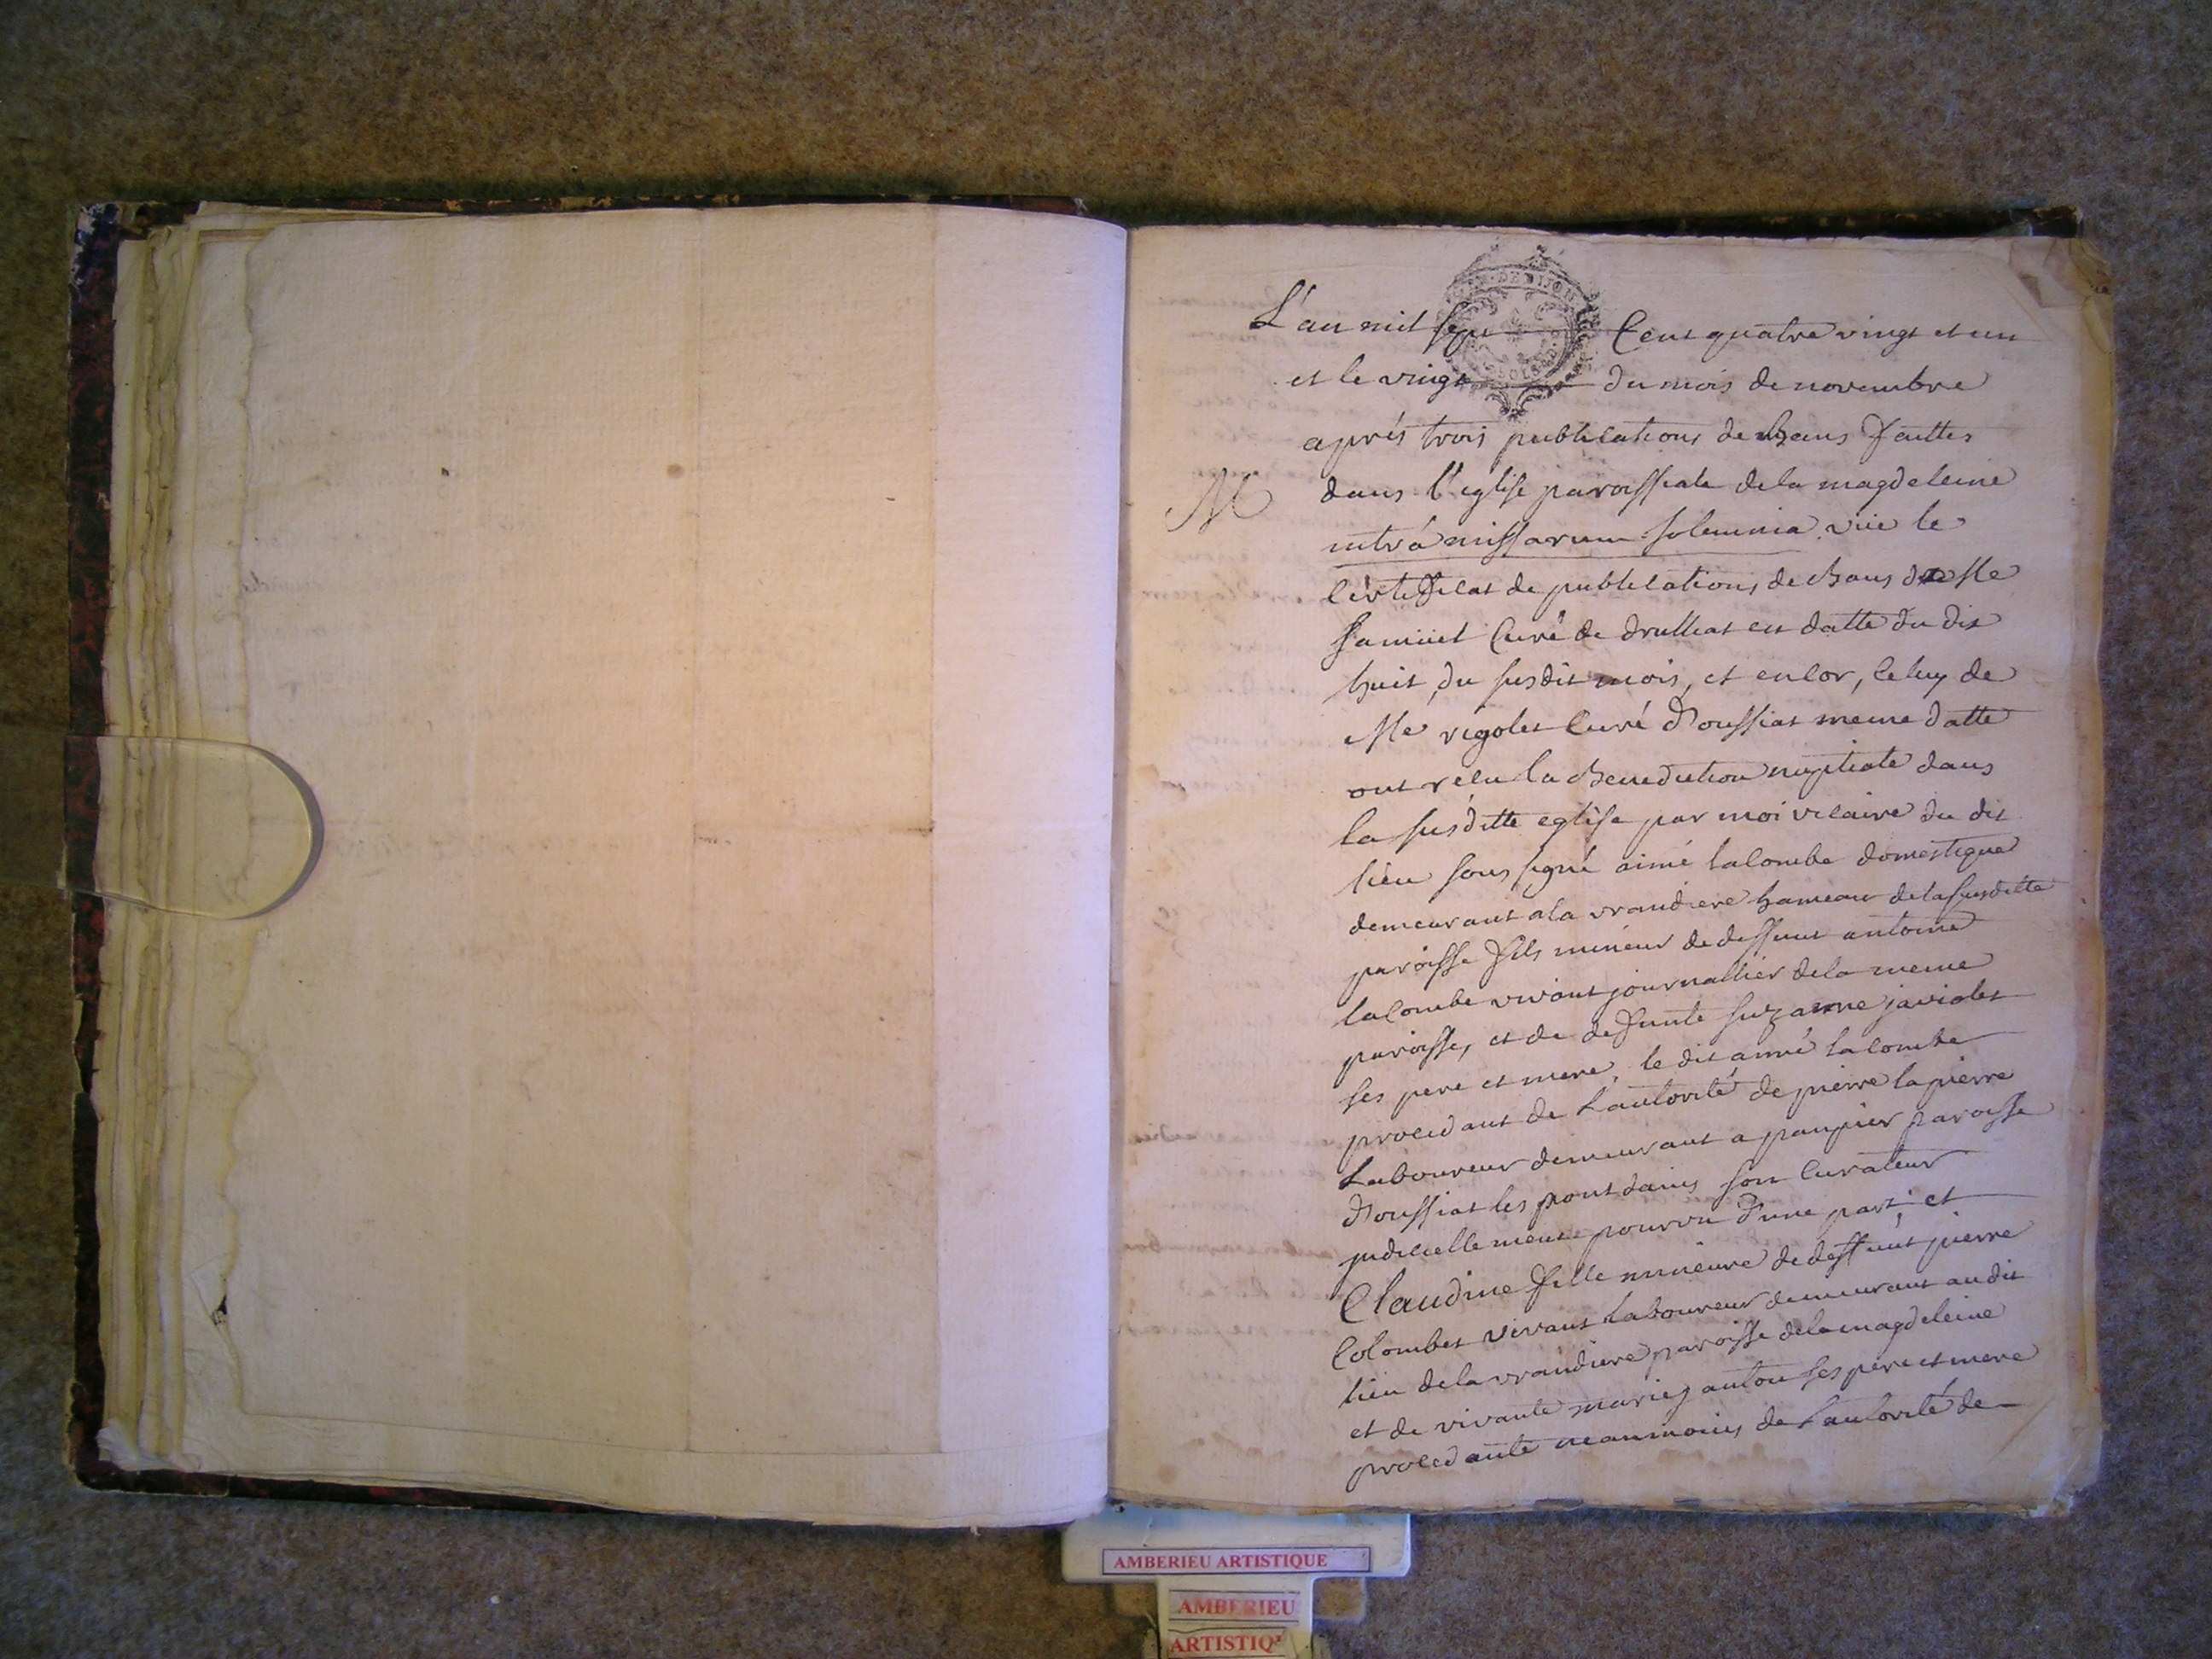 L'an mil sept Cent quatre vingt et un
et le vingt du mois de novembre
aprés trois publications de bans faittes
M dans l'eglise paroissiale de la magdeleine
intrà missarum solemnia vüe le
Certificat de publications de bans de Me
Samüel Curé de drulliat en datte du dix
huit, du susdit mois, et encor, celuy de
Me rigolet Curé d'oussiat meme datte
ont recu la benediction nuptiale dans
la susditte eglise par moi vicaire du dit
lieu sous signé aimé lacombe domestique
demeurant a la vrandiere hameau de la susditte
paroisse fils mineur de deffunt antoine
lacombe vivant journallier de la meme
paroisse, et de defunte suzanne javiolet
ses pere et mere, le dit aimé lacombe
procedant de Lautorité de pierre lapierre
Laboureur demeurant a paupier paroisse
d'oussiat les pont dains son Curateur
judiciellement pourvu d'une part, et
Claudine fille mineure de deffunt pierre
Colombet vivant Laboureur demeurant au dit
lieu de la vrandiere paroisse de la magdeleine
et de vivante mariez anton ses pere et mere
procedante neanmoins de Lautorité de
DE DIJON
AMBERIEU ARTISTIQUE
AMBERIEU
ARTISTIQ